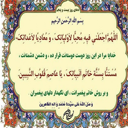 دعای روز بیست و پنجم
بسم الله الرحمن الرحیم
اللهُمَّ اجْعَلْنِي فِيهِ مُحِبّاً لِأَوْلِيَائِكَ، وَ مُعَادِياً لِأَعْدَائِكَ،
خدایا مرا در این روز دوست دوستانت قرار ده و دشمن دشمنانت،
مُسْتَنّاً بِسُنَّةِ خَاتَمِ أَنْبِيَائِكَ، يَا عَاصِمَ قُلُوبِ النَّبِيِّينَ.
و بر روش خاتم پیغمبرانت، ای نگهدار دلهای پیغمبران